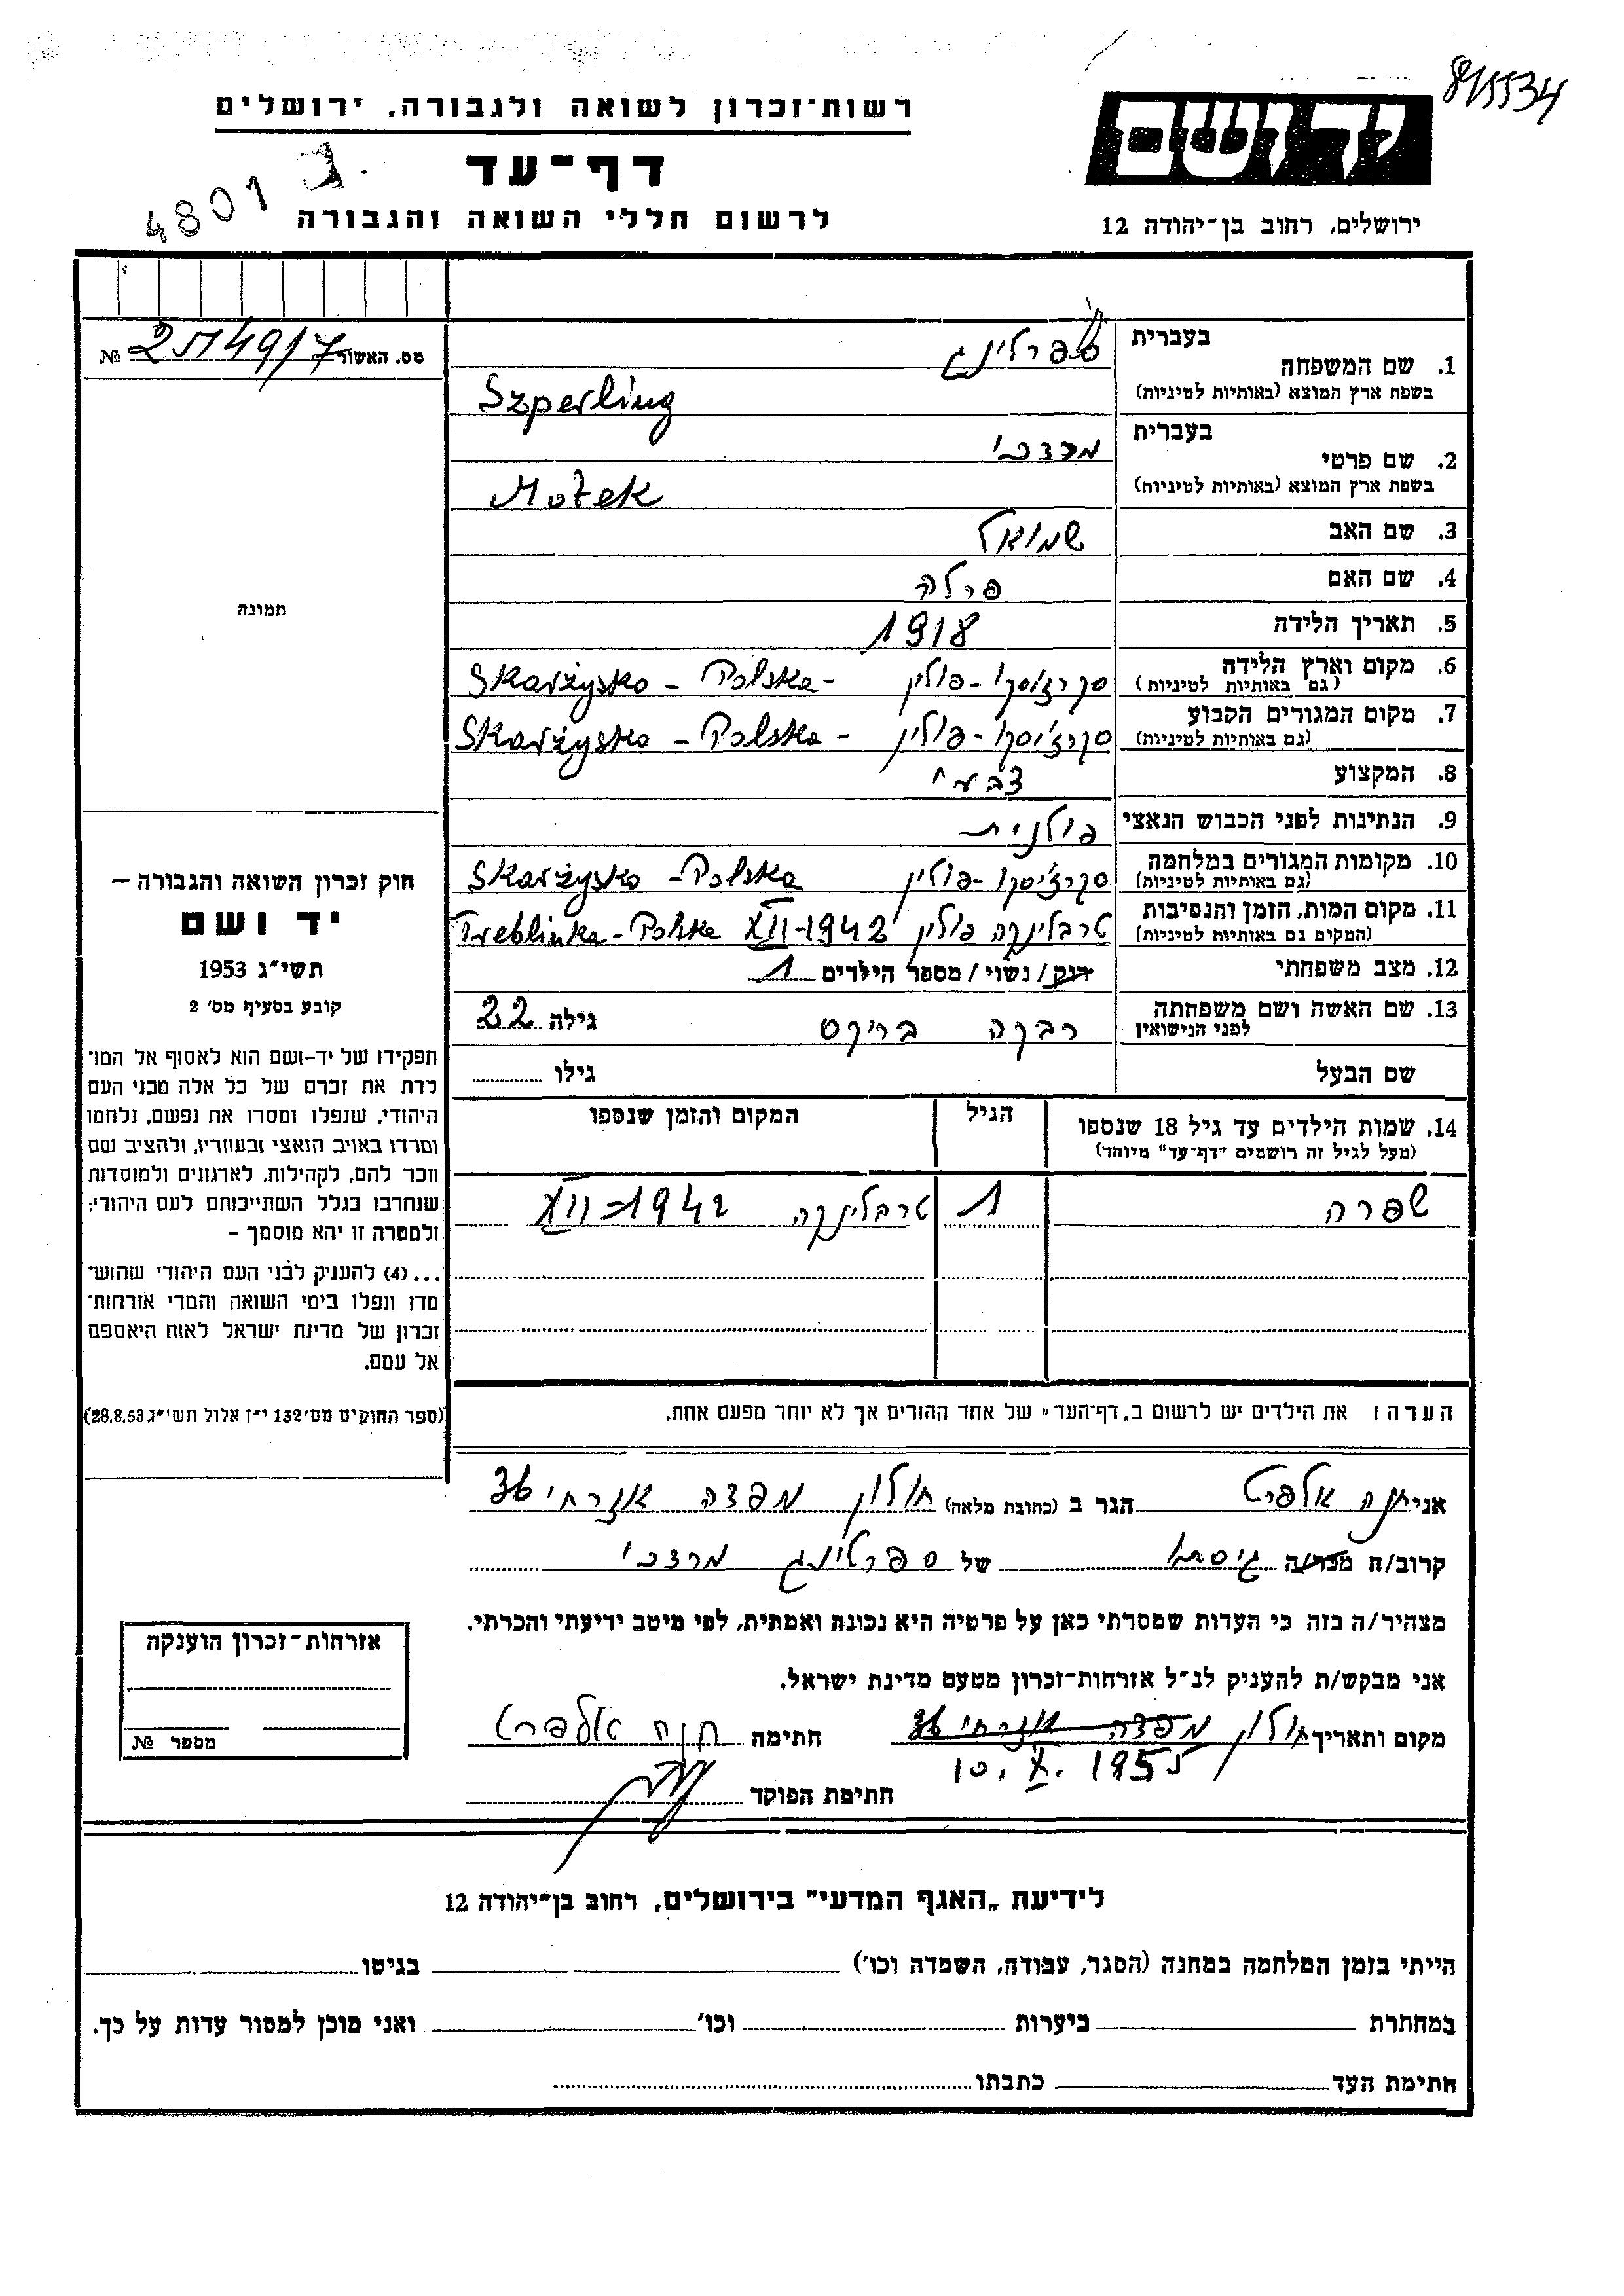 845534
יד ושם
רשות־זכרון לשואה ולגבורה, ירושלים
דף־עד
4801 ג.
לרשום חללי השואה והגבורה
ירושלים, רחוב בן־יהודה 12
מס. האשור № 
1. שם המשפחה בעברית ספרלינג
בשפת ארץ המוצא (באותיות לטיניות) Szperling
2. שם פרטי בעברית מרדכי
בשפת ארץ המוצא (באותיות לטיניות) Motek
3. שם האב שמואל
4. שם האם פרלה
5. תאריך הלידה 1918
6. מקום וארץ הלידה (גם באותיות לטיניות) סקרז'יסקו - פולין Skarżysko - Polska -
7. מקום המגורים הקבוע (גם באותיות לטיניות) סקרז'יסקו - פולין Skarżysko - Polska -
8. המקצוע צבעי
9. הנתינות לפני הכבוש הנאצי פולנית
10. מקומות המגורים במלחמה (גם באותיות לטיניות) סקרז'יסקו - פולין Skarżysko - Polska
11. מקום המות, הזמן והנסיבות (המקום גם באותיות לטיניות) טרבלינקה פולין XII-1942 Treblinka - Polska
12. מצב משפחתי רווק / נשוי / מספר הילדים 1
13. שם האשה ושם משפחתה לפני הנישואין רבקה בריקס גילה 22
שם הבעל גילו
14. שמות הילדים עד גיל 18 שנספו הגיל המקום והזמן שנספו
(מעל לגיל זה רושמים "דף־עד" מיוחד)
שפרה 1 טרבלינקה XII-1942
הערה: את הילדים יש לרשום ב„דף־העד" של אחד ההורים אך לא יותר מפעם אחת.
תמונה
חוק זכרון השואה והגבורה –
יד ושם
תשי"ג 1953
קובע בסעיף מס' 2
תפקידו של יד-ושם הוא לאסוף אל המו־
לדת את זכרם של כל אלה מבני העם
היהודי, שנפלו ומסרו את נפשם, נלחמו
ומרדו באויב הנאצי ובעוזריו, ולהציב שם
וזכר להם, לקהילות, לארגונים ולמוסדות
שנחרבו בגלל השתייכותם לעם היהודי;
ולמטרה זו יהא מוסמך –
...(4) להעניק לבני העם היהודי שהוש־
מדו ונפלו בימי השואה והמרי אזרחות־
זכרון של מדינת ישראל לאות היאספם
אל עמם.
(ספר החוקים מס' 132 י"ז אלול תשי"ג 28.8.53)
אני חנה אלפרט הגר ב (כתובת מלאה) חולון 36
קרוב/ה מכר/ה גיסתו של ספרלינג מרדכי
מצהיר/ה בזה כי העדות שמסרתי כאן על פרטיה היא נכונה ואמתית, לפי מיטב ידיעתי והכרתי.
אני מבקש/ת להעניק לנ"ל אזרחות־זכרון מטעם מדינת ישראל.
מקום ותאריך חולון 10.X.1955 חתימה חנה אלפרט
חתימת הפוקד
אזרחות־זכרון הוענקה
מספר №
לידיעת „האגף המדעי" בירושלים, רחוב בן־יהודה 12
הייתי בזמן המלחמה במחנה (הסגר, עבודה, השמדה וכו') בגיטו
במחתרת ביערות וכו' ואני מוכן למסור עדות על כך.
חתימת העד כתבתו